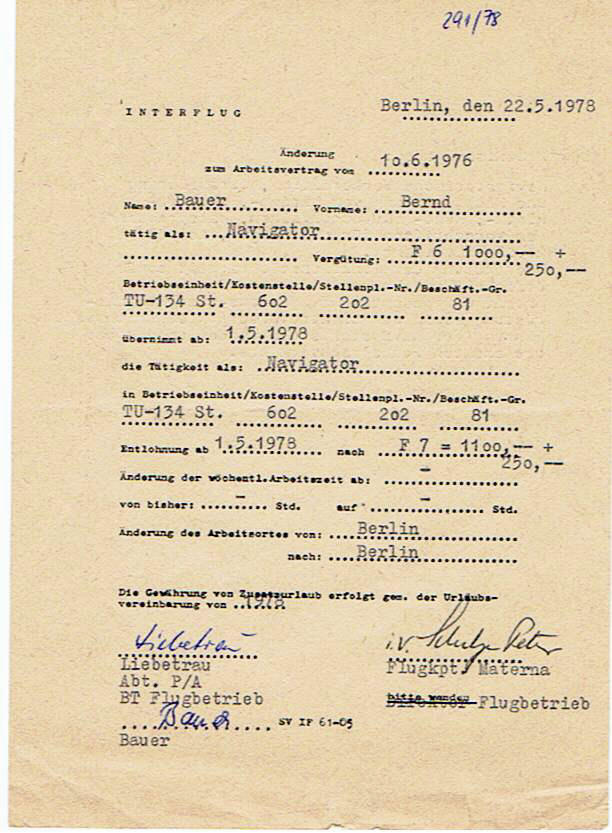 291/78
INTERFLUG
Berlin, den 22.5.1978
Änderung
zum Arbeitsvertrag vom 10.6.1976
Name: Bauer Vorname: Bernd
tätig als: Navigator
Vergütung: F 6 1000,-- +
250,--
Betriebseinheit/Kostenstelle/Stellenpl.-Nr./Beschäft.-Gr.
TU-134 St. 602 202 81
übernimmt ab: 1.5.1978
die Tätigkeit als: Navigator
in Betriebseinheit/Kostenstelle/Stellenpl.-Nr./Beschäft.-Gr.
TU-134 St. 602 202 81
Entlohnung ab 1.5.1978 nach F 7 = 1100,-- +
250,--
Änderung der wöchentl.Arbeitszeit ab: –
von bisher: – Std. auf – Std.
Änderung des Arbeitsortes von: Berlin
nach: Berlin
Die Gewährung von Zusatzurlaub erfolgt gem. der Urlaubs-
vereinbarung von 1978
Liebetrau i.V. Schulze Peter
Liebetrau Flugkpt. Materna
Abt. P/A
BT Flugbetrieb bitte wenden Flugbetrieb
Bauer SV IF 61-05
Bauer